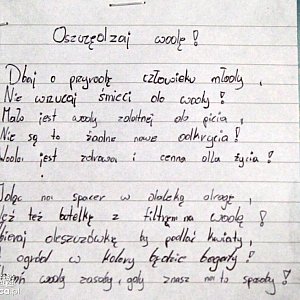 Oszczędzaj wodę!
Dbaj o przyrodę człowieku młody,
Nie wrzucaj śmieci do wody!
Mało jest wody zdatnej do picia,
Nie są to żadne nowe odkrycia!
Woda jest zdrowa i cenna dla życia!
Idąc na spacer w daleką drogę,
też butelkę z filtrem na wodę!
deszczówkę by podlać kwiaty,
ogród w kolory będzie bogaty!
wody zasoby, gdy znasz na to sposoby!